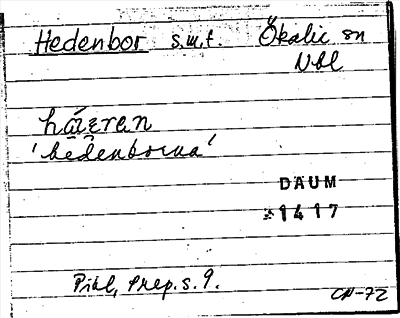 Hedenbor s.m.f. Ökalix sn
Nbl
hæ̂ǽren
'hedenborna'
DAUM
*1417
Pihl, Prep. s. 9.
CP-72